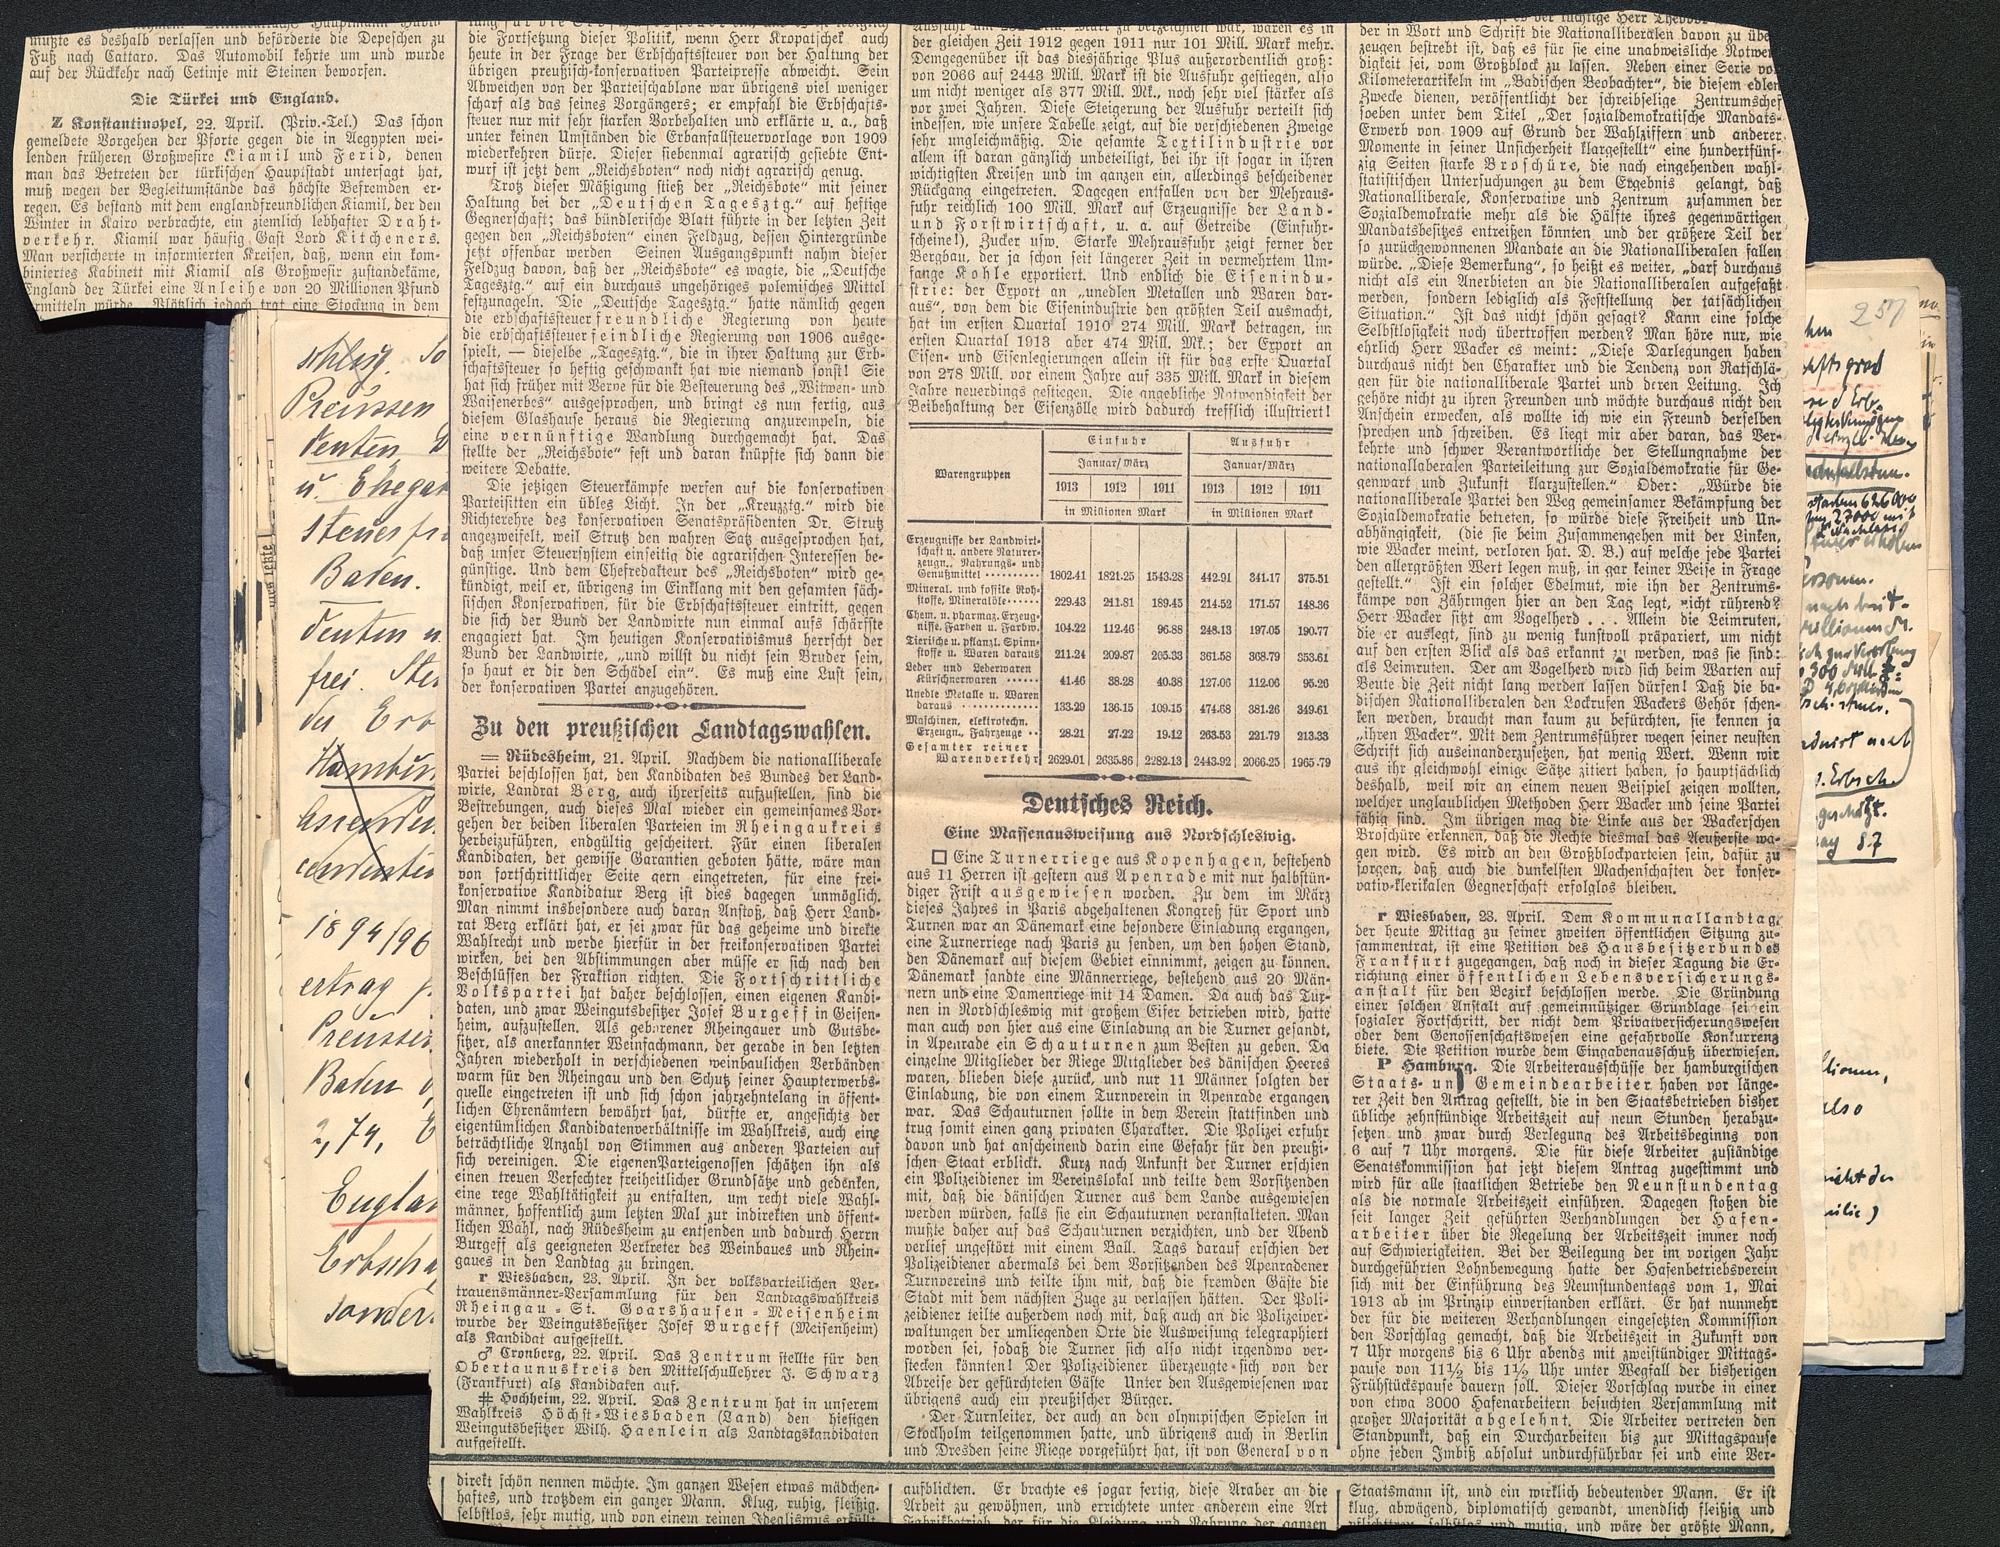 mußte es deshalb verlassen und beförderte die Depeschen zu
Fuß nach Cattaro. Das Automobil kehrte um und wurde
auf der Rückkehr nach Cetinje mit Steinen beworfen.
Die Türkei und England.
Z Konstantinopel, 22. April. (Priv.-Tel.) Das schon
gemeldete Vorgehen der Pforte gegen die in Aegypten wei-
lenden früheren Großwesire Kiamil und Ferid, denen
man das Betreten der türkischen Hauptstadt untersagt hat,
muß wegen der Begleitumstände das höchste Befremden er-
regen. Es bestand mit dem englandfreundlichen Kiamil, der den
Winter in Kairo verbrachte, ein ziemlich lebhafter Draht-
verkehr. Kiamil war häufig Gast Lord Kitcheners.
Man versicherte in informierten Kreisen, daß, wenn ein kom-
biniertes Kabinett mit Kiamil als Großwesir zustandekäme,
England der Türkei eine Anleihe von 20 Millionen Pfund
ermitteln würde. Plötzlich jedoch trat eine Stockung in dem
die Fortsetzung dieser Politik, wenn Herr Kropatschek auch
heute in der Frage der Erbschaftssteuer von der Haltung der
übrigen preußisch-konservativen Parteipresse abweicht. Sein
Abweichen von der Parteischablone war übrigens viel weniger
scharf als das seines Vorgängers; er empfahl die Erbschafts-
steuer nur mit sehr starken Vorbehalten und erklärte u. a., daß
unter keinen Umständen die Erbanfallsteuervorlage von 1909
wiederkehren dürfe. Dieser siebenmal agrarisch gesiebte Ent-
wurf ist jetzt dem „Reichsboten" noch nicht agrarisch genug.
Trotz dieser Mäßigung stieß der „Reichsbote" mit seiner
Haltung bei der „Deutschen Tagesztg." auf heftige
Gegnerschaft; das bündlerische Blatt führte in der letzten Zeit
gegen den „Reichsboten" einen Feldzug, dessen Hintergründe
jetzt offenbar werden Seinen Ausgangspunkt nahm dieser
Feldzug davon, daß der „Reichsbote" es wagte, die „Deutsche
Tagesztg." auf ein durchaus ungehöriges polemisches Mittel
festzunageln. Die „Deutsche Tagesztg." hatte nämlich gegen
die erbschaftssteuerfreundliche Regierung von heute
die erbschaftssteuerfeindliche Regierung von 1906 ausge-
spielt, — dieselbe „Tagesztg.", die in ihrer Haltung zur Erb-
schaftssteuer so heftig geschwankt hat wie niemand sonst! Sie
hat sich früher mit Verve für die Besteuerung des „Witwen- und
Waisenerbes" ausgesprochen, und bringt es nun fertig, aus
diesem Glashause heraus die Regierung anzurempeln, die
eine vernünftige Wandlung durchgemacht hat. Das
stellte der „Reichsbote" fest und daran knüpfte sich dann die
weitere Debatte.
Die jetzigen Steuerkämpfe werfen auf die konservativen
Parteisitten ein übles Licht. In der „Kreuzztg." wird die
Richterehre des konservativen Senatspräsidenten Dr. Strutz
angezweifelt, weil Strutz den wahren Satz ausgesprochen hat,
daß unser Steuersystem einseitig die agrarischen Interessen be-
günstige. Und dem Chefredakteur des „Reichsboten" wird ge-
kündigt, weil er, übrigens im Einklang mit den gesamten säch-
sischen Konservativen, für die Erbschaftssteuer eintritt, gegen
die sich der Bund der Landwirte nun einmal aufs schärfste
engagiert hat. Im heutigen Konservativismus herrscht der
Bund der Landwirte, „und willst du nicht sein Bruder sein,
so haut er dir den Schädel ein". Es muß eine Lust sein,
der konservativen Partei anzugehören.
Zu den preußischen Landtagswahlen.
= Rüdesheim, 21. April. Nachdem die nationalliberale
Partei beschlossen hat, den Kandidaten des Bundes der Land-
wirte, Landrat Berg, auch ihrerseits aufzustellen, sind die
Bestrebungen, auch dieses Mal wieder ein gemeinsames Vor-
gehen der beiden liberalen Parteien im Rheingaukreis
herbeizuführen, endgültig gescheitert. Für einen liberalen
Kandidaten, der gewisse Garantien geboten hätte, wäre man
von fortschrittlicher Seite gern eingetreten, für eine frei-
konservative Kandidatur Berg ist dies dagegen unmöglich.
Man nimmt insbesondere auch daran Anstoß, daß Herr Land-
rat Berg erklärt hat, er sei zwar für das geheime und direkte
Wahlrecht und werde hierfür in der freikonservativen Partei
wirken, bei den Abstimmungen aber müsse er sich nach den
Beschlüssen der Fraktion richten. Die Fortschrittliche
Volkspartei hat daher beschlossen, einen eigenen Kandi-
daten, und zwar Weingutsbesitzer Josef Burgeff in Geisen-
heim, aufzustellen. Als geborener Rheingauer und Gutsbe-
sitzer, als anerkannter Weinfachmann, der gerade in den letzten
Jahren wiederholt in verschiedenen weinbaulichen Verbänden
warm für den Rheingau und den Schutz seiner Haupterwerbs-
quelle eingetreten ist und sich schon jahrzehntelang in öffent-
lichen Ehrenämtern bewährt hat, dürfte er, angesichts der
eigentümlichen Kandidatenverhältnisse im Wahlkreis, auch eine
beträchtliche Anzahl von Stimmen aus anderen Parteien auf
sich vereinigen. Die eigenen Parteigenossen schätzen ihn als
einen treuen Verfechter freiheitlicher Grundsätze und gedenken,
eine rege Wahltätigkeit zu entfalten, um recht viele Wahl-
männer, hoffentlich zum letzten Mal zur indirekten und öffent-
lichen Wahl, nach Rüdesheim zu entsenden und dadurch Herrn
Burgeff als geeigneten Vertreter des Weinbaues und Rhein-
gaues in den Landtag zu bringen.
r Wiesbaden, 23. April. In der volksparteilichen Ver-
trauensmänner-Versammlung für den Landtagswahlkreis
Rheingau-St. Goarshausen-Meisenheim
wurde der Weingutsbesitzer Josef Burgeff (Meisenheim)
als Kandidat aufgestellt.
♂ Cronberg, 22. April. Das Zentrum stellte für den
Obertaunuskreis den Mittelschullehrer J. Schwarz
(Frankfurt) als Kandidaten auf.
# Hochheim, 22. April. Das Zentrum hat in unserem
Wahlkreis Höchst-Wiesbaden (Land) den hiesigen
Weingutsbesitzer Wilh. Haenlein als Landtagskandidaten
aufgestellt.
direkt schön nennen möchte. Im ganzen Wesen etwas mädchen-
haftes, und trotzdem ein ganzer Mann. Klug, ruhig, fleißig,
selbstlos, sehr mutig, und von einem reinen Idealismus erfüllt
der gleichen Zeit 1912 gegen 1911 nur 101 Mill. Mark mehr.
Demgegenüber ist das diesjährige Plus außerordentlich groß:
von 2066 auf 2443 Mill. Mark ist die Ausfuhr gestiegen, also
um nicht weniger als 377 Mill. Mk., noch sehr viel stärker als
vor zwei Jahren. Diese Steigerung der Ausfuhr verteilt sich
indessen, wie unsere Tabelle zeigt, auf die verschiedenen Zweige
sehr ungleichmäßig. Die gesamte Textilindustrie vor
allem ist daran gänzlich unbeteiligt, bei ihr ist sogar in ihren
wichtigsten Kreisen und im ganzen ein, allerdings bescheidener
Rückgang eingetreten. Dagegen entfallen von der Mehraus-
fuhr reichlich 100 Mill. Mark auf Erzeugnisse der Land-
und Forstwirtschaft, u. a. auf Getreide (Einfuhr-
scheine!), Zucker usw. Starke Mehrausfuhr zeigt ferner der
Bergbau, der ja schon seit längerer Zeit in vermehrtem Um-
fange Kohle exportiert. Und endlich die Eisenindu-
strie: der Export an „unedlen Metallen und Waren dar-
aus", von dem die Eisenindustrie den größten Teil ausmacht,
hat im ersten Quartal 1910 274 Mill. Mark betragen, im
ersten Quartal 1913 aber 474 Mill. Mk.; der Export an
Eisen- und Eisenlegierungen allein ist für das erste Quartal
von 278 Mill. vor einem Jahre auf 335 Mill. Mark in diesem
Jahre neuerdings gestiegen. Die angebliche Notwendigkeit der
Beibehaltung der Eisenzölle wird dadurch trefflich illustriert!
Warengruppen Einfuhr Ausfuhr
Januar/März Januar/März
1913 1912 1911 1913 1912 1911
in Millionen Mark in Millionen Mark
Erzeugnisse der Landwirt-
schaft u. andere Naturer-
zeugn., Nahrungs- und
Genußmittel 1802.41 1821.25 1543.28 442.91 341.17 375.51
Mineral. und fossile Roh-
stoffe, Mineralöle 229.43 211.81 189.45 214.52 171.57 148.36
Chem. u. pharmaz. Erzeug-
nisse, Farben u. Farbw. 104.22 112.46 96.88 248.13 197.05 190.77
Tierische u. pflanzl. Spinn-
stoffe u. Waren daraus 211.24 209.87 205.33 361.58 368.79 353.61
Leder und Lederwaren
Kürschnerwaren 41.46 38.28 40.38 127.06 112.06 95.26
Unedle Metalle u. Waren
daraus 133.29 136.15 109.15 474.68 381.26 349.61
Maschinen, elektrotechn.
Erzeugn., Fahrzeuge 28.21 27.22 19.12 263.53 221.79 213.33
Gesamter reiner
Warenverkehr 2629.01 2635.86 2282.13 2443.92 2066.25 1965.79
Deutsches Reich.
Eine Massenausweisung aus Nordschleswig.
□ Eine Turnerriege aus Kopenhagen, bestehend
aus 11 Herren ist gestern aus Apenrade mit nur halbstün-
diger Frist ausgewiesen worden. Zu dem im März
dieses Jahres in Paris abgehaltenen Kongreß für Sport und
Turnen war an Dänemark eine besondere Einladung ergangen,
eine Turnerriege nach Paris zu senden, um den hohen Stand,
den Dänemark auf diesem Gebiet einnimmt, zeigen zu können.
Dänemark sandte eine Männerriege, bestehend aus 20 Män-
nern und eine Damenriege mit 14 Damen. Da auch das Tur-
nen in Nordschleswig mit großem Eifer betrieben wird, hatte
man auch von hier aus eine Einladung an die Turner gesandt,
in Apenrade ein Schauturnen zum Besten zu geben. Da
einzelne Mitglieder der Riege Mitglieder des dänischen Heeres
waren, blieben diese zurück, und nur 11 Männer folgten der
Einladung, die von einem Turnverein in Apenrade ergangen
war. Das Schauturnen sollte in dem Verein stattfinden und
trug somit einen ganz privaten Charakter. Die Polizei erfuhr
davon und hat anscheinend darin eine Gefahr für den preußi-
schen Staat erblickt. Kurz nach Ankunft der Turner erschien
ein Polizeidiener im Vereinslokal und teilte dem Vorsitzenden
mit, daß die dänischen Turner aus dem Lande ausgewiesen
werden würden, falls sie ein Schauturnen veranstalteten. Man
mußte daher auf das Schauturnen verzichten, und der Abend
verlief ungestört mit einem Ball. Tags darauf erschien der
Polizeidiener abermals bei dem Vorsitzenden des Apenradener
Turnvereins und teilte ihm mit, daß die fremden Gäste die
Stadt mit dem nächsten Zuge zu verlassen hätten. Der Poli-
zeidiener teilte außerdem noch mit, daß auch an die Polizeiver-
waltungen der umliegenden Orte die Ausweisung telegraphiert
worden sei, sodaß die Turner sich also nicht irgendwo ver-
stecken könnten! Der Polizeidiener überzeugte sich von der
Abreise der gefürchteten Gäste Unter den Ausgewiesenen war
übrigens auch ein preußischer Bürger.
Der Turnleiter, der auch an den olympischen Spielen in
Stockholm teilgenommen hatte, und übrigens auch in Berlin
und Dresden seine Riege vorgeführt hat, ist von General von
aufblickten. Er brachte es sogar fertig, diese Araber an die
Arbeit zu gewöhnen, und errichtete unter anderem eine Art
Fabrikbetrieb, der für die Kleidung und Nahrung der ganzen
der in Wort und Schrift die Nationalliberalen davon zu übe
zeugen bestrebt ist, daß es für sie eine unabweisliche Notwen
digkeit sei, vom Großblock zu lassen. Neben einer Serie vo
Kilometerartikeln im „Badischen Beobachter", die diesem edlen
Zwecke dienen, veröffentlicht der schreibselige Zentrumschef
soeben unter dem Titel „Der sozialdemokratische Mandats-
Erwerb von 1909 auf Grund der Wahlziffern und anderer
Momente in seiner Unsicherheit klargestellt" eine hundertfünf-
zig Seiten starke Broschüre, die nach eingehenden wahl-
statistischen Untersuchungen zu dem Ergebnis gelangt, daß
Nationalliberale, Konservative und Zentrum zusammen der
Sozialdemokratie mehr als die Hälfte ihres gegenwärtigen
Mandatsbesitzes entreißen könnten, und der größere Teil der
so zurückgewonnenen Mandate an die Nationalliberalen fallen
würde. „Diese Bemerkung", so heißt es weiter, „darf durchaus
nicht als ein Anerbieten an die Nationalliberalen aufgefaßt
werden, sondern lediglich als Feststellung der tatsächlichen
Situation." Ist das nicht schön gesagt? Kann eine solche
Selbstlosigkeit noch übertroffen werden? Man höre nur, wie
ehrlich Herr Wacker es meint: „Diese Darlegungen haben
durchaus nicht den Charakter und die Tendenz von Ratschlä-
gen für die nationalliberale Partei und deren Leitung. Ich
gehöre nicht zu ihren Freunden und möchte durchaus nicht den
Anschein erwecken, als wollte ich wie ein Freund derselben
sprechen und schreiben. Es liegt mir aber daran, das Ver-
kehrte und schwer Verantwortliche der Stellungnahme der
nationallaberalen Parteileitung zur Sozialdemokratie für Ge-
genwart und Zukunft klarzustellen." Oder: „Würde die
nationalliberale Partei den Weg gemeinsamer Bekämpfung der
Sozialdemokratie betreten, so würde diese Freiheit und Un-
abhängigkeit, (die sie beim Zusammengehen mit der Linken,
wie Wacker meint, verloren hat. D. B.) auf welche jede Partei
den allergrößten Wert legen muß, in gar keiner Weise in Frage
gestellt." Ist ein solcher Edelmut, wie ihn der Zentrums-
kämpe von Zähringen hier an den Tag legt, nicht rührend?
Herr Wacker sitzt am Vogelherd . . . Allein die Leimruten,
die er auslegt, sind zu wenig kunstvoll präpariert, um nicht
auf den ersten Blick als das erkannt zu werden, was sie sind:
als Leimruten. Der am Vogelherd wird sich beim Warten auf
Beute die Zeit nicht lang werden lassen dürfen! Daß die ba-
dischen Nationalliberalen den Lockrufen Wackers Gehör schen-
ken werden, braucht man kaum zu befürchten, sie kennen ja
„ihren Wacker". Mit dem Zentrumsführer wegen seiner neusten
Schrift sich auseinanderzusetzen, hat wenig Wert. Wenn wir
aus ihr gleichwohl einige Sätze zitiert haben, so hauptsächlich
deshalb, weil wir an einem neuen Beispiel zeigen wollten,
welcher unglaublichen Methoden Herr Wacker und seine Partei
fähig sind. Im übrigen mag die Linke aus der Wackerschen
Broschüre erkennen, daß die Rechte diesmal das Aeußerste wa-
gen wird. Es wird an den Großblockparteien sein, dafür zu
sorgen, daß auch die dunkelsten Machenschaften der konser-
vativ-klerikalen Gegnerschaft erfolglos bleiben.
r Wiesbaden, 23. April. Dem Kommunallandtag,
der heute Mittag zu seiner zweiten öffentlichen Sitzung zu-
sammentrat, ist eine Petition des Hausbesitzerbundes
Frankfurt zugegangen, daß noch in dieser Tagung die Er-
richtung einer öffentlichen Lebensversicherungs-
anstalt für den Bezirk beschlossen werde. Die Gründung
einer solchen Anstalt auf gemeinnütziger Grundlage sei ein
sozialer Fortschritt, der nicht dem Privatversicherungswesen
oder dem Genossenschaftswesen eine gefahrvolle Konkurrenz
biete. Die Petition wurde dem Eingabenausschuß überwiesen.
P Hamburg. Die Arbeiterausschüsse der hamburgischen
Staats- und Gemeindearbeiter haben vor länge-
rer Zeit den Antrag gestellt, die in den Staatsbetrieben bisher
übliche zehnstündige Arbeitszeit auf neun Stunden herabzu-
setzen und zwar durch Verlegung des Arbeitsbeginns von
6 auf 7 Uhr morgens. Die für diese Arbeiter zuständige
Senatskommission hat jetzt diesem Antrag zugestimmt und
wird für alle staatlichen Betriebe den Neunstundentag
als die normale Arbeitszeit einführen. Dagegen stoßen die
seit langer Zeit geführten Verhandlungen der Hafen-
arbeiter über die Regelung der Arbeitszeit immer noch
auf Schwierigkeiten. Bei der Beilegung der im vorigen Jahr
durchgeführten Lohnbewegung hatte der Hafenbetriebsverein
sich mit der Einführung des Neunstundentags vom 1. Mai
1913 ab im Prinzip einverstanden erklärt. Er hat nunmehr
der für die weiteren Verhandlungen eingesetzten Kommission
den Vorschlag gemacht, daß die Arbeitszeit in Zukunft von
7 Uhr morgens bis 6 Uhr abends mit zweistündiger Mittags-
pause von 11½ bis 1½ Uhr unter Wegfall der bisherigen
Frühstückspause dauern soll. Dieser Vorschlag wurde in einer
von etwa 3000 Hafenarbeitern besuchten Versammlung mit
großer Majorität abgelehnt. Die Arbeiter vertreten den
Standpunkt, daß ein Durcharbeiten bis zur Mittagspause
ohne jeden Imbiß absolut undurchführbar sei und eine Ver-
Staatsmann ist, und ein wirklich bedeutender Mann. Er ist
klug, abwägend, diplomatisch gewandt, unendlich fleißig und
pflichttreu, selbstlos und mutig, und wäre der größte Mann,
Preussen
u. Ehegat
Steuerfr
Baden.
denten u
frei. Ste
der Erb
Hambur
1894/96
ertrag
Preussen
Baden
2,74,
Englan
Erbscha
sonder
257